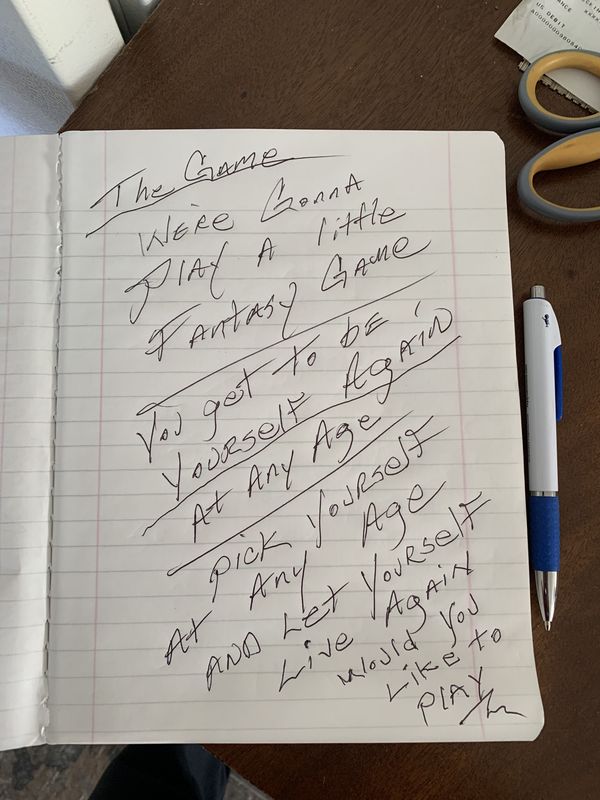 The Game
We're Gonna
Play A little
Fantasy Game
You get to be
Yourself Again
At Any Age
Pick Yourself
At Any Age
And Let Yourself
Live Again
Would you
Like to
Play
US DEBIT